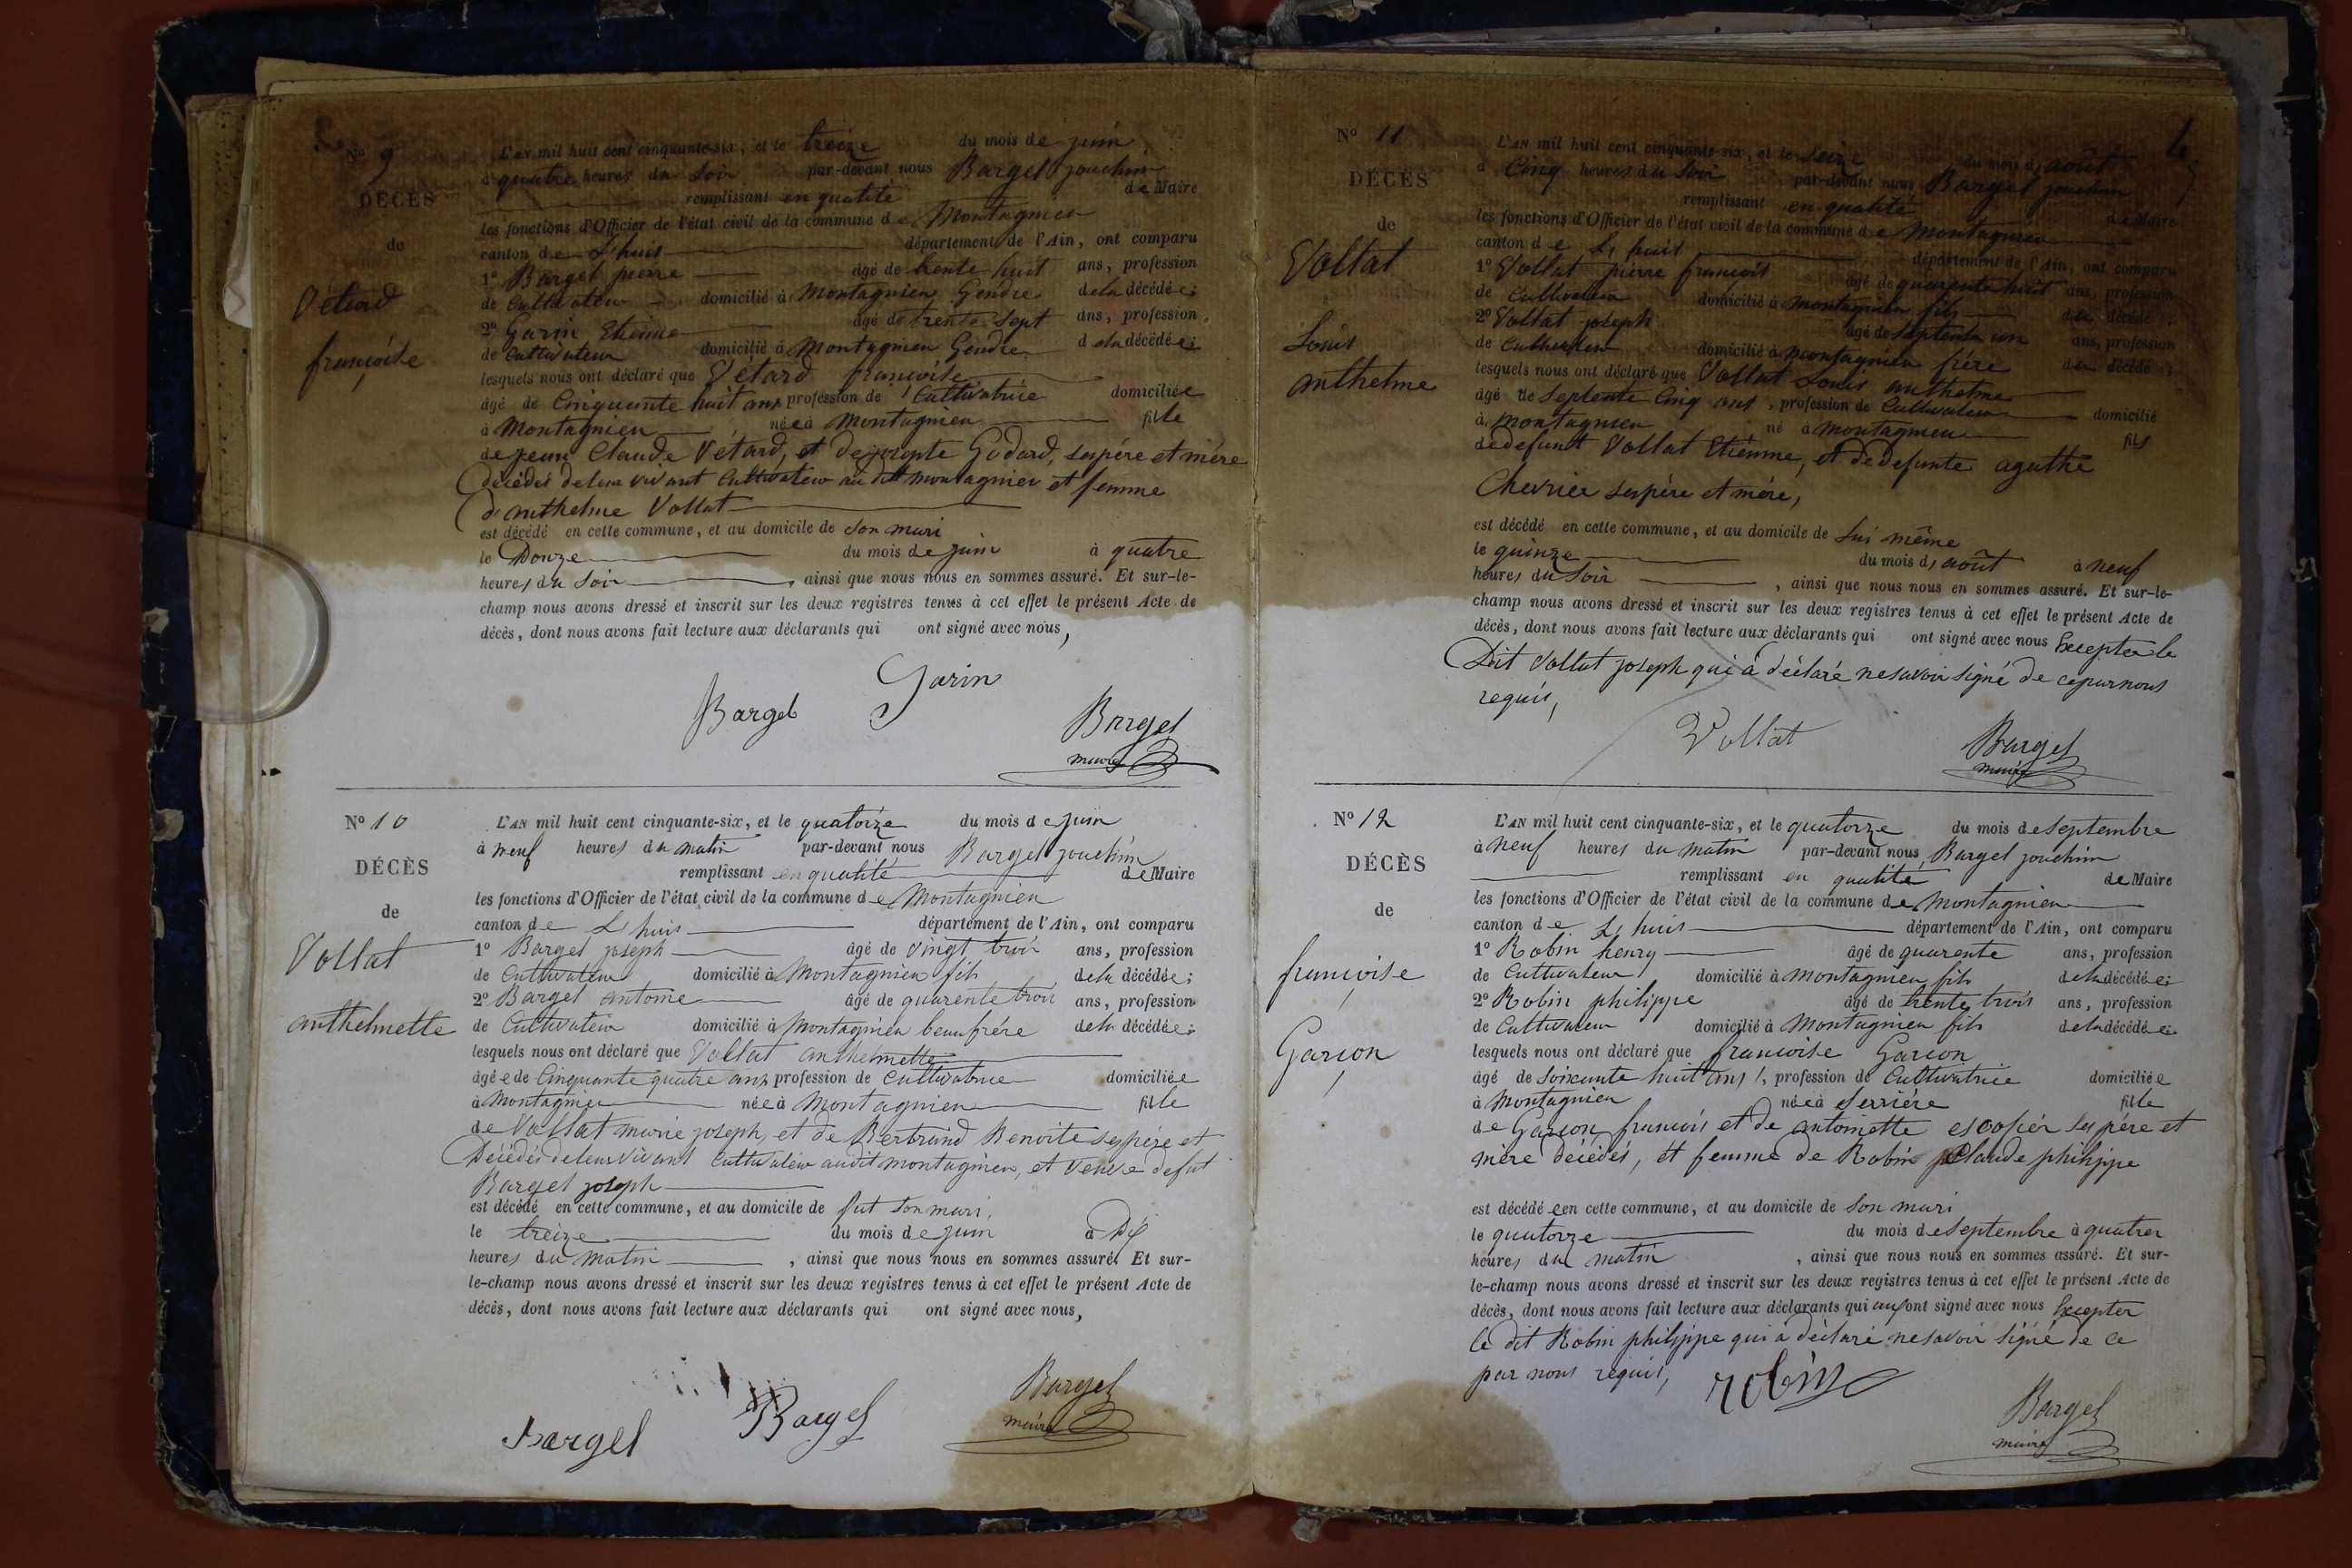 N° 9
DÉCÈS
de
Vétard
françoise
L'AN mil huit cent cinquante-six, et le treize du mois de juin
à quatre heures du Soir par-devant nous Bargel joachim
remplissant en qualité de Maire
les fonctions d'Officier de l'état civil de la commune de Montagnieu
canton de Lhuis département de l'Ain, ont comparu
1° Bargel pierre âgé de trente huit ans, profession
de Cultivateur domicilié à Montagnieu Gendre de la décédée;
2° Garin Etienne âgé de trente Sept ans, profession
de Cultivateur domicilié à Montagnieu Gendre de la décédée;
lesquels nous ont déclaré que Vétard françoise
âgé de Cinquante huit ans profession de Cultivatrice domiciliée
à Montagnieu née à Montagnieu fille
de jean Claude Vétard, et de josepte Godard, ses père et mère
Décédés de leur vivant Cultivateur au dit montagnieu et femme
d'anthelme Vollat
est décédé en cette commune, et au domicile de Son mari
le Douze du mois de juin à quatre
heures du Soir, ainsi que nous nous en sommes assuré. Et sur-le-
champ nous avons dressé et inscrit sur les deux registres tenus à cet effet le présent Acte de
décès, dont nous avons fait lecture aux déclarants qui ont signé avec nous,
Bargel Garin Bargel
maire
N° 10
DÉCÈS
de
Vollat
anthelmette
L'AN mil huit cent cinquante-six, et le quatorze du mois de juin
à neuf heures du matin par-devant nous Bargel joachim
remplissant en qualité de Maire
les fonctions d'Officier de l'état civil de la commune de Montagnieu
canton de Lhuis département de l'Ain, ont comparu
1° Bargel joseph âgé de vingt trois ans, profession
de Cultivateur domicilié à Montagnieu fils de la décédée;
2° Bargel antoine âgé de quarente trois ans, profession
de Cultivateur domicilié à Montagnieu beaufrére de la décédée;
lesquels nous ont déclaré que Vollat anthelmette
âgée de Cinquante quatre ans profession de Cultivatrice domiciliée
à Montagnieu née à Montagnieu fille
de Vollat marie joseph, et de Bertrand Benoite ses pére et
Décédés de leur vivant Cultivateur audit montagnieu, et veuve de fut
Bargel joseph
est décédé en cette commune, et au domicile de fut Son mari,
le treize du mois de juin à Dix
heures du matin, ainsi que nous nous en sommes assuré. Et sur-
le-champ nous avons dressé et inscrit sur les deux registres tenus à cet effet le présent Acte de
décès, dont nous avons fait lecture aux déclarants qui ont signé avec nous,
Bargel Bargel Bargel
maire
4
N° 11
DÉCÈS
de
Vollat
Louis
anthelme
L'AN mil huit cent cinquante-six, et le Seize du mois d'août
à Cinq heures du Soir par-devant nous Bargel joachim
remplissant en qualité de Maire
les fonctions d'Officier de l'état civil de la commune de Montagnieu
canton de Lhuis département de l'Ain, ont comparu
1° Vollat pierre françois âgé de quarente huit ans, profession
de Cultivateur domicilié à Montagnieu fils du décédé;
2° Vollat joseph âgé de Septente un ans, profession
de Cultivateur domicilié à Montagnieu frére du décédé;
lesquels nous ont déclaré que Vollat Louis anthelme
âgé de Septente Cinq ans, profession de Cultivateur domicilié
à Montagnieu né à Montagnieu fils
de defunt Vollat Etienne, et de defunte agathe
Chevrier ses père et mére,
est décédé en cette commune, et au domicile de Lui même
le quinze du mois d'août à neuf
heures du Soir, ainsi que nous nous en sommes assuré. Et sur-le-
champ nous avons dressé et inscrit sur les deux registres tenus à cet effet le présent Acte de
décès, dont nous avons fait lecture aux déclarants qui ont signé avec nous Excepter le
Dit Vollat joseph qui à déclaré ne savoir signé de ce par nous
requis,
Vollat Bargel
maire
N° 12
DÉCÈS
de
françoise
Garcon
L'AN mil huit cent cinquante-six, et le quatorze du mois de Septembre
à neuf heures du matin par-devant nous Bargel joachim
remplissant en qualité de Maire
les fonctions d'Officier de l'état civil de la commune de Montagnieu
canton de Lhuis département de l'Ain, ont comparu
1° Robin henry âgé de quarente ans, profession
de Cultivateur domicilié à Montagnieu fils de la décédée;
2° Robin philippe âgé de trente trois ans, profession
de Cultivateur domicilié à Montagnieu fils de la décédée;
lesquels nous ont déclaré que francoise Garcon
âgé de Soixante huit ans, profession de Cultivatrice domiciliée
à Montagnieu née à Serriére fille
de Garcon francois et de antoinette escofier ses pére et
mére décédés, et femme de Robin Claude philippe
est décédée en cette commune, et au domicile de Son mari
le quatorze du mois de Septembre à quatrer
heures du matin, ainsi que nous nous en sommes assuré. Et sur-
le-champ nous avons dressé et inscrit sur les deux registres tenus à cet effet le présent Acte de
décès, dont nous avons fait lecture aux déclarants qui ont signé avec nous Excepter
le dit Robin philippe qui à déclaré ne savoir signé de ce
par nous requis,
robin Bargel
maire